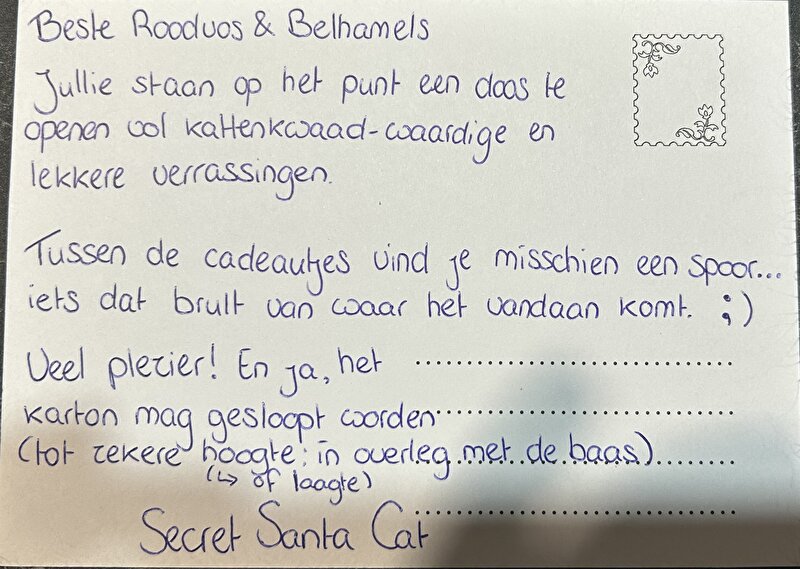 Beste Rooduos & Belhamels
Jullie staan op het punt een doos te
openen vol kattenkwaad-waardige en
lekkere verrassingen.
Tussen de cadeautjes vind je misschien een spoor...
iets dat brult van waar het vandaan komt. ;)
Veel plezier! En ja, het
karton mag gesloopt worden
(tot zekere hoogte; in overleg met de baas)
(↳ of laagte)
Secret Santa Cat